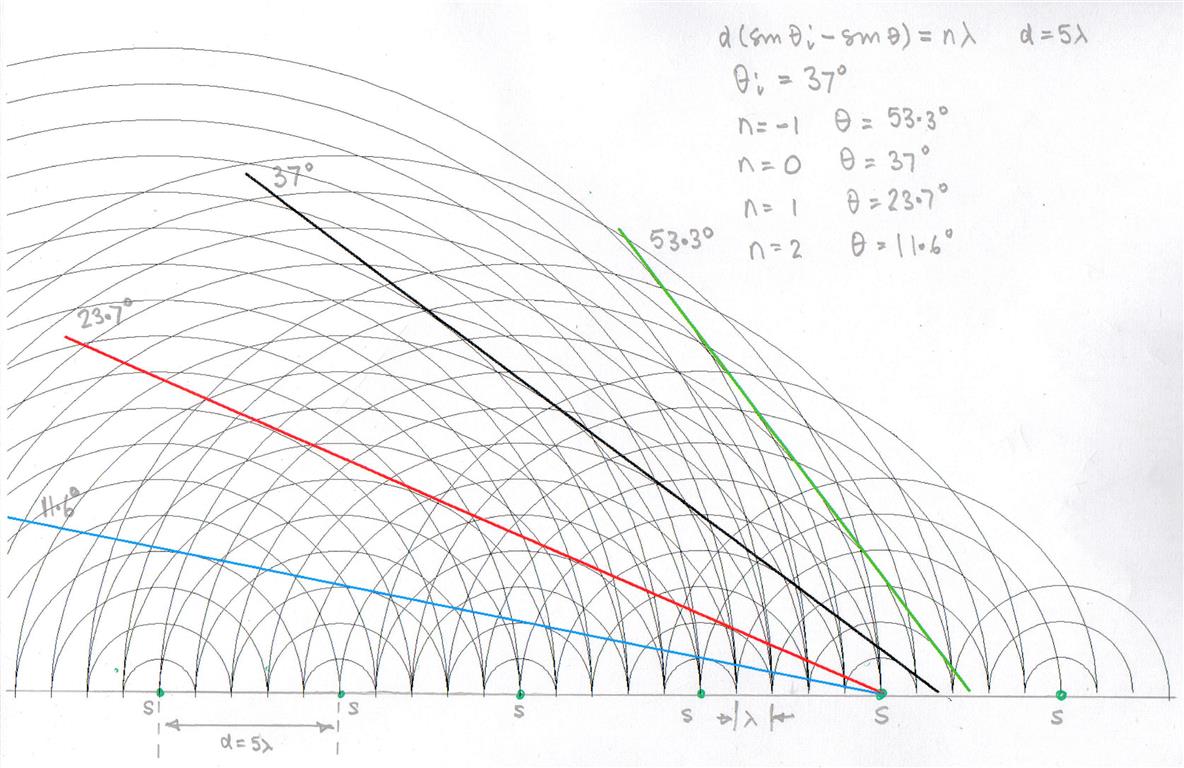 d(sinθi-sinθ)=nλ d=5λ
θi = 37°
n=-1 θ = 53.3°
n=0 θ = 37°
n= 1 θ=23.7°
n=2 θ=11.6°
37°
53.3°
23.7°
11.6°
S S S S λ S S
d=5λ